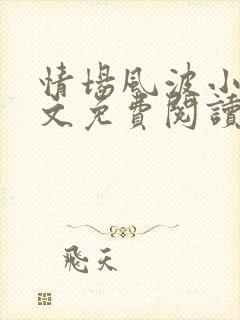 情場風波小
文免費閱讀
飛天